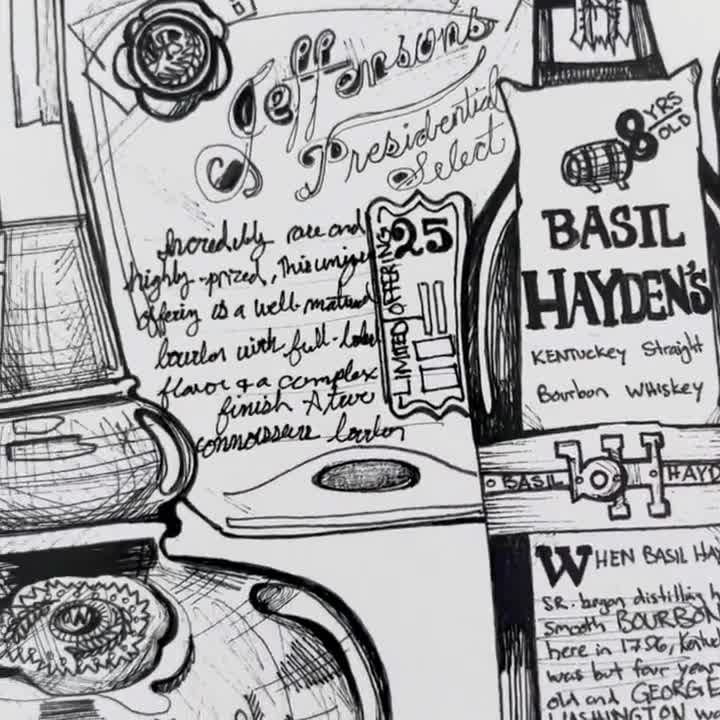 Jefferson's
Presidential
Select
Incredibly rare and
highly-prized, this unique
offering is a well-matured
bourbon with full-bodied
flavor & a complex
finish A true
connoisseur bourbon
25
LIMITED OFFERING
8 YRS
OLD
BASIL
HAYDEN'S
KENTUCKEY Straight
Bourbon WHISKEY
BASIL H HAYD
WHEN BASIL HAY
SR. began distilling h
Smooth BOURBON
here in 1796, Kentu
was but four years
old and GEORGE
WASHINGTON wa